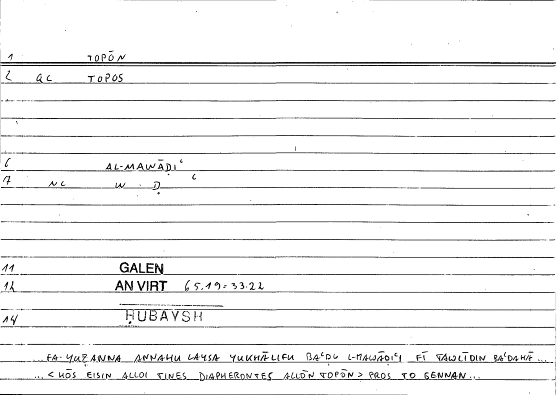 1 TOPŌN
2 GC TOPOS
6 AL-MAWĀḌIʿ
7 NC W Ḍ ʿ
11 GALEN
12 AN VIRT 65.19=33.22
14 ḤUBAYSH
...FA-YUẒANNA ANNAHU LAYSA YUKHĀLIFU BAʿḌU L-MAWĀḌIʿI FĪ TAWLĪDIN BAʿḌAHĀ...
...<HŌS EISIN ALLOI TINES DIAPHERONTES ALLŌN TOPŌN> PROS TO GENNAN...